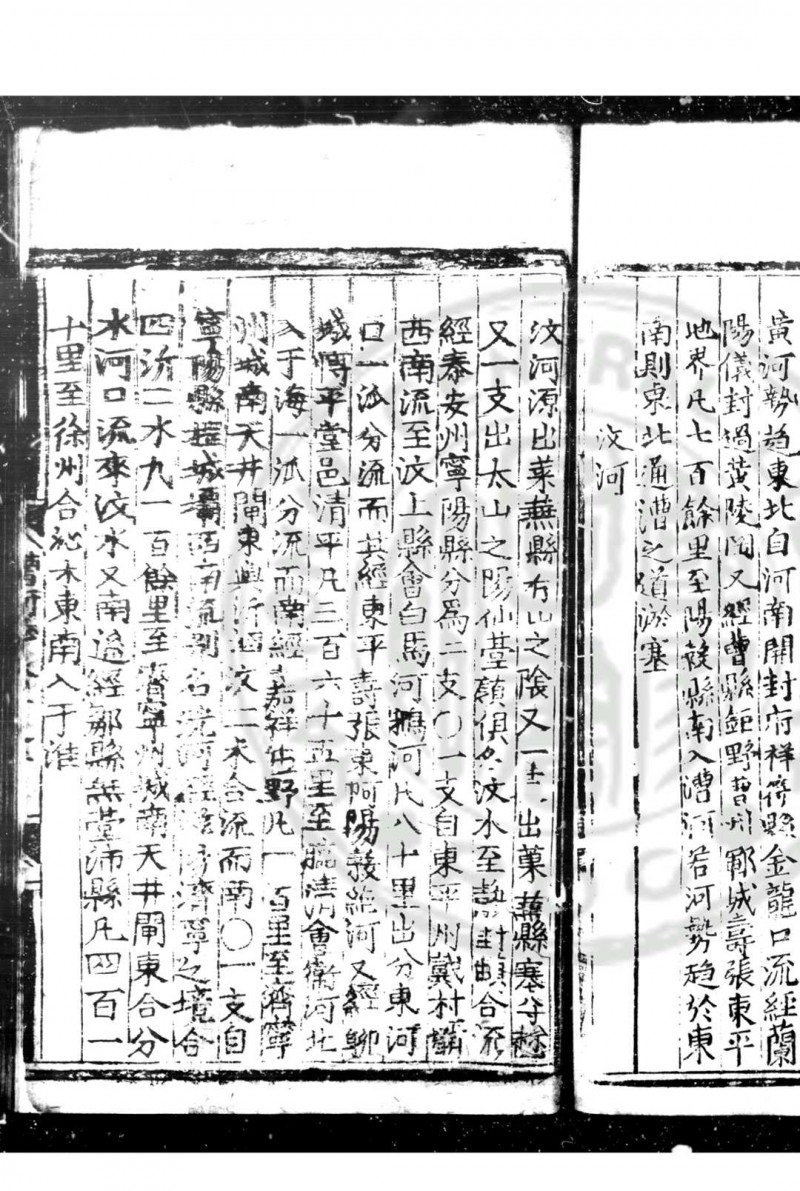 黃河勢趨東北自河南開封府祥符縣金龍口流經蘭
陽儀封過黃陵岡又經曹縣鉅野曹州鄆城壽張東平
地界凡七百餘里至陽穀縣南入漕河若河勢趨於東
南則東北通漕之道淤塞
汶河
汶河源出萊蕪縣 山之陰又一 出萊蕪縣寨子村
又一支出太山之陽仙臺嶺俱名汶水至 封 合流
經泰安州寧陽縣分爲二支〇一支自東平州戴村壩
西南流至汶上縣會白馬河鵝河凡八十里出分東河
口一派分流而 經東平壽張東阿陽穀 河又經聊
城博平堂邑清平凡三百六十五里至臨清會衛河北
入于海一派分流而南經嘉祥 野凡一百里至濟寧
州城南天井閘東與沂泗汶二水合流而南〇一支自
寧陽縣堽城壩西南流別名洸河經 陽濟寧之境合
四 二水 一百餘里至濟寧州城南天井閘東合分
水河口流來汶水又南 經鄒縣 沛縣凡四百一
十里至徐州合沁水東南入于淮